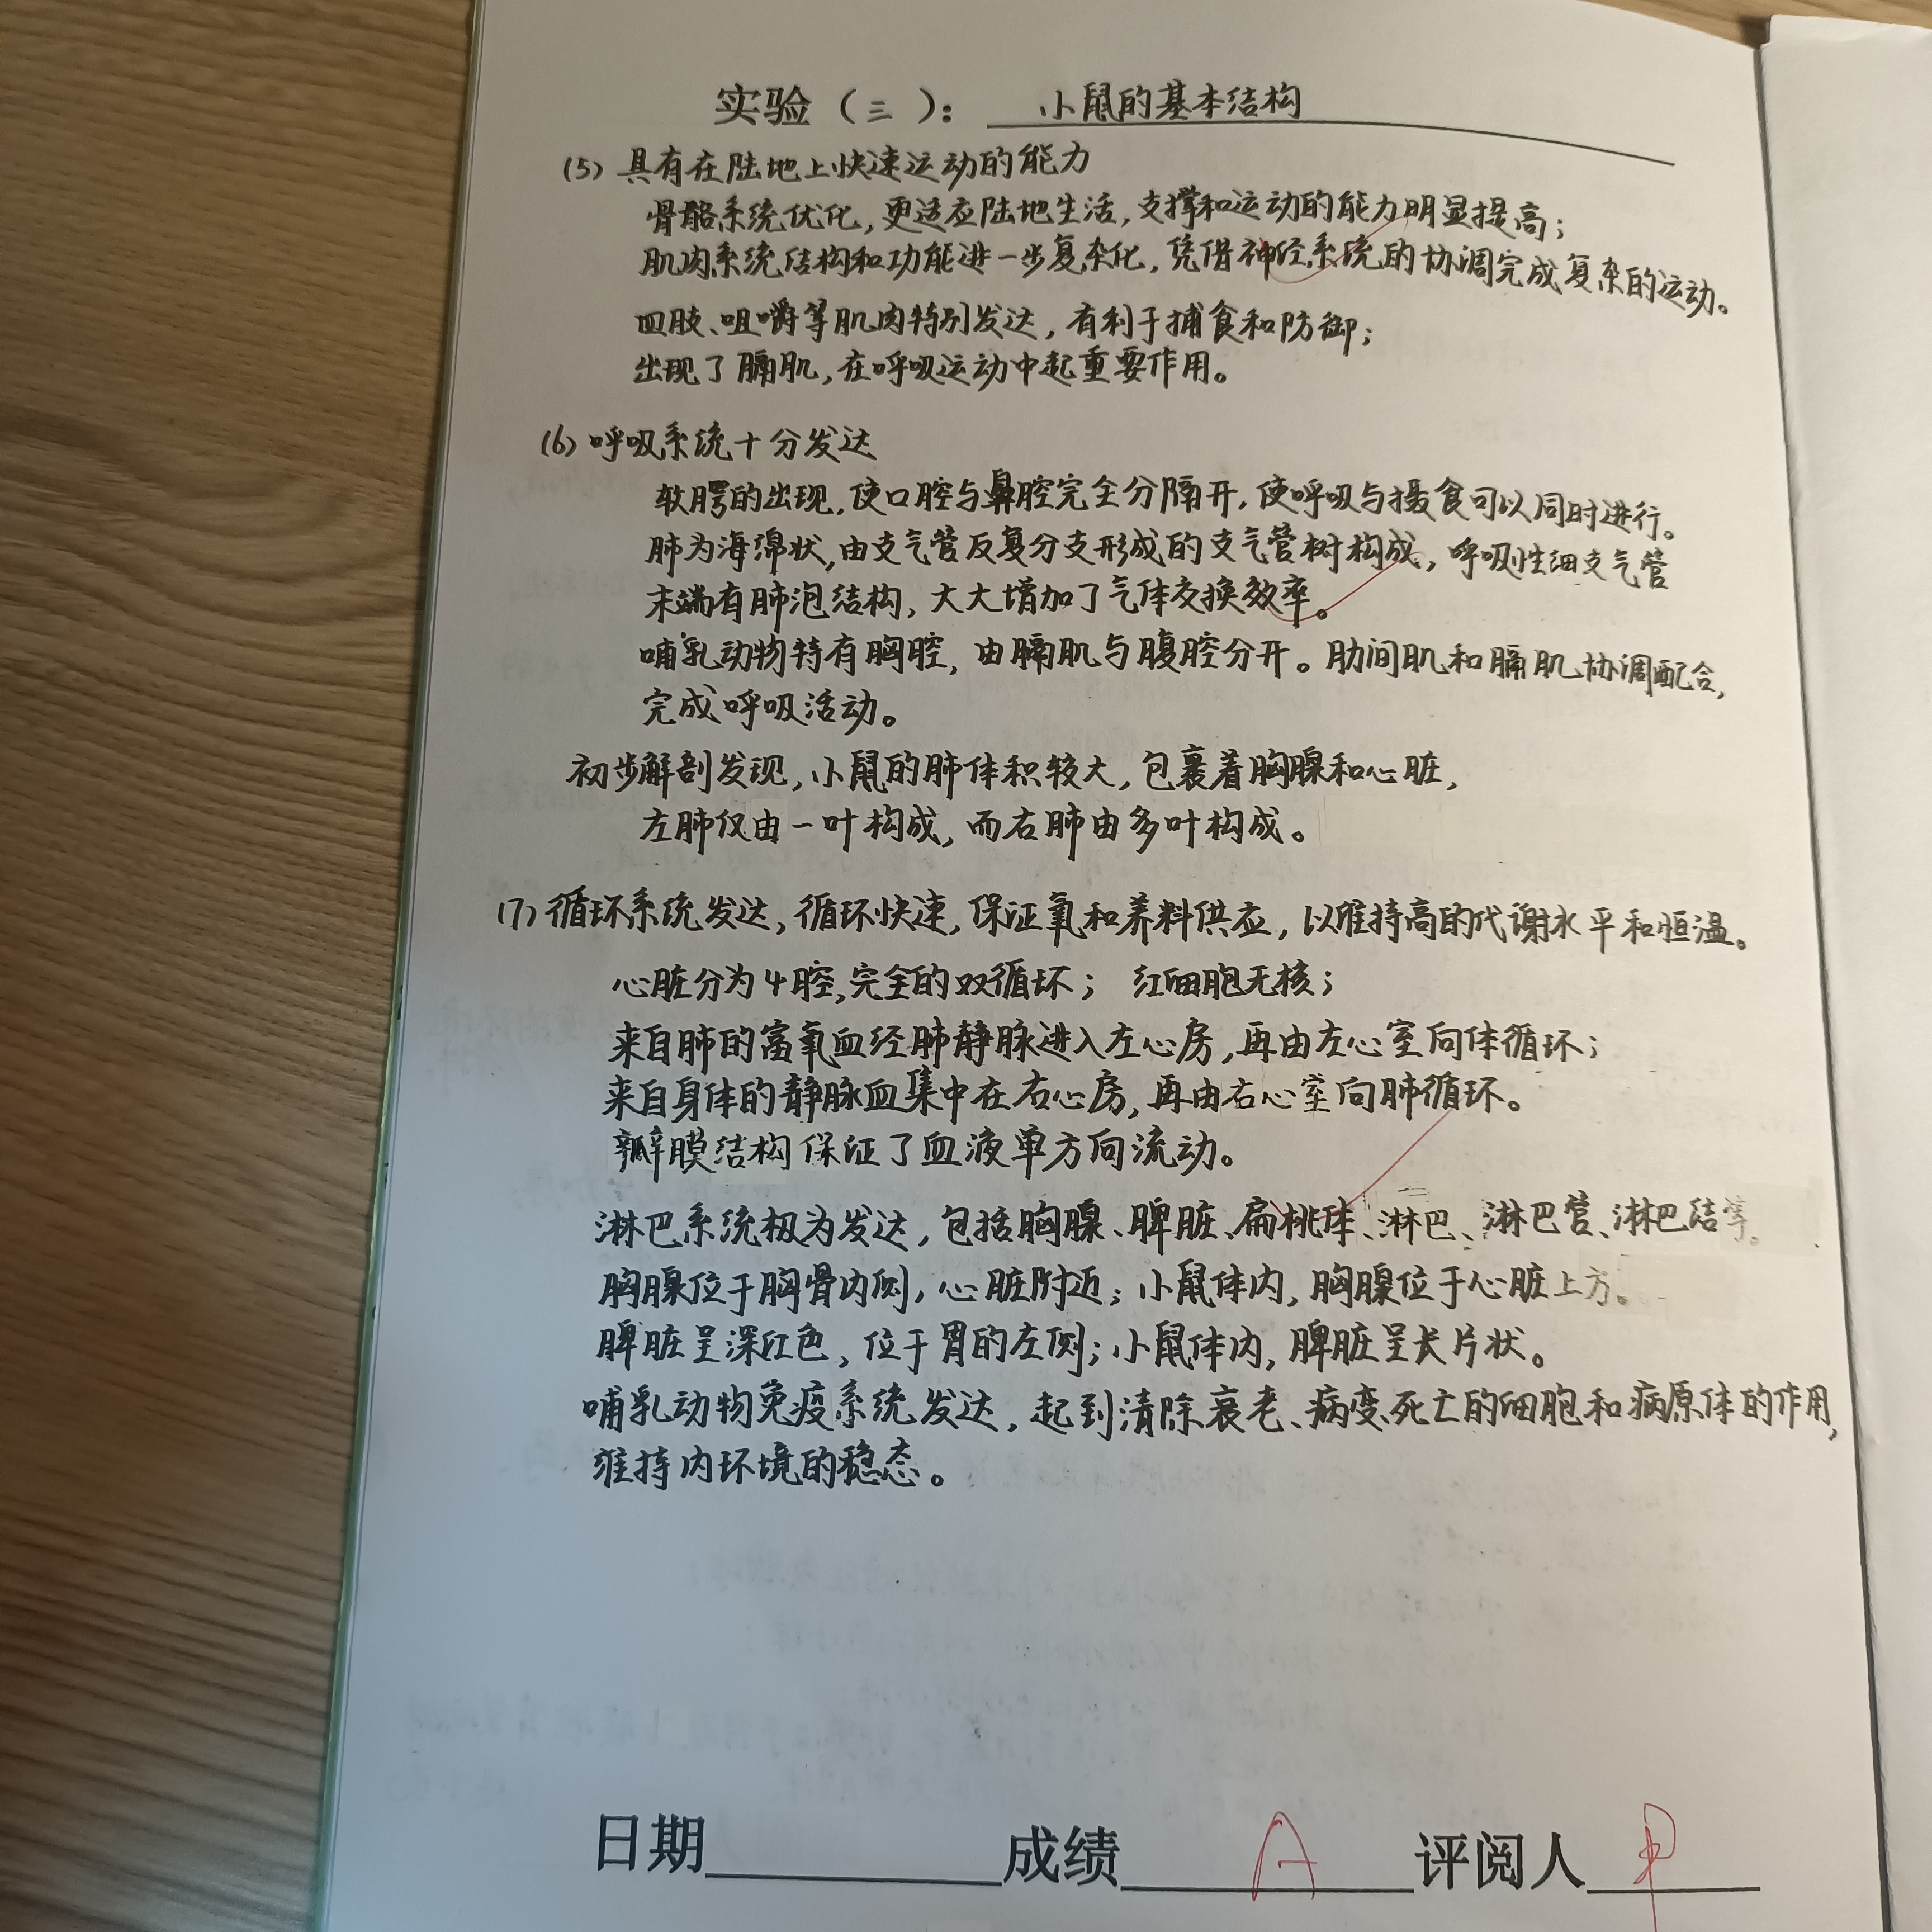 实验（三）： 小鼠的基本结构
(5) 具有在陆地上快速运动的能力
骨骼系统优化，更适应陆地生活，支撑和运动的能力明显提高；
肌肉系统结构和功能进一步复杂化，凭借神经系统的协调完成复杂的运动。
四肢、咀嚼等肌肉特别发达，有利于捕食和防御；
出现了膈肌，在呼吸运动中起重要作用。
(6) 呼吸系统十分发达
软腭的出现，使口腔与鼻腔完全分隔开，使呼吸与摄食可以同时进行。
肺为海绵状，由支气管反复分支形成的支气管树构成，呼吸性细支气管
末端有肺泡结构，大大增加了气体交换效率。
哺乳动物特有胸腔，由膈肌与腹腔分开。肋间肌和膈肌协调配合，
完成呼吸活动。
初步解剖发现，小鼠的肺体积较大，包裹着胸腺和心脏，
左肺仅由一叶构成，而右肺由多叶构成。
(7) 循环系统发达，循环快速，保证氧和养料供应，以维持高的代谢水平和恒温。
心脏分为4腔，完全的双循环； 红细胞无核；
来自肺的富氧血经肺静脉进入左心房，再由左心室向体循环；
来自身体的静脉血集中在右心房，再由右心室向肺循环。
瓣膜结构保证了血液单方向流动。
淋巴系统极为发达，包括胸腺、脾脏、扁桃体、淋巴、淋巴管、淋巴结等。
胸腺位于胸骨内侧，心脏附近；小鼠体内，胸腺位于心脏上方。
脾脏呈深红色，位于胃的左侧；小鼠体内，脾脏呈长片状。
哺乳动物免疫系统发达，起到清除衰老、病变、死亡的细胞和病原体的作用，
维持内环境的稳态。
日期 成绩 A 评阅人